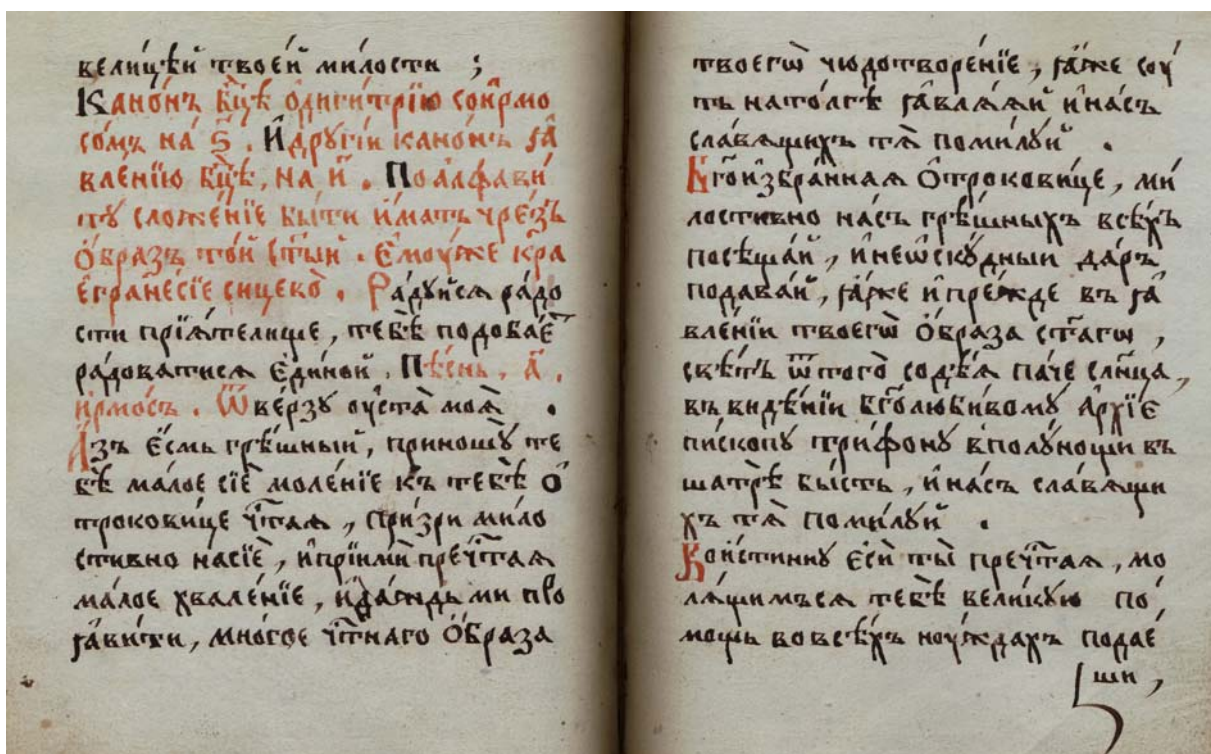 вели́цѣй твое́й ми́лости ;
Кано́нъ бц҃ѣ ѻ҆диги́трїю со і҆рмо
со́мъ на ѕ҃ . И҆ другі́и кано́нъ ꙗ҆
вле́нїю бц҃ѣ, на и҃ . По а҆лфави
ту сложе́нїе бы́ти и҆́мать чре́зъ
ѻ҆́бразъ то́й ст҃ы́й . є҆моу́же кра
егране́сїе сицево̀ . Ра́дꙋйсѧ ра́до
сти прїѧ́телище, тебѣ̀ подоба́е
ра́доватисѧ є҆ди́ной . Пѣ́снь . а҃ .
і҆рмо́съ . Ѿве́рзꙋ оу҆ста̀ моѧ̀ .
А҆́зъ є҆́смь грѣ́шный, приношꙋ̀ те
бѣ̀ ма́лое сїѐ моле́нїе къ тебѣ̀ ѻ҆
трокови́це чⷭ҇таѧ, при́зри ми́ло
стивно на сїѐ, и҆ прїимѝ пречⷭ҇таѧ
ма́лое хвале́нїе, и҆ да́ждь ми про
ꙗ҆ви́ти, мно́гое чⷭ҇тнаго ѻ҆́браза
твоегѡ̀ чюдотворе́нїе, ꙗ҆́же соу́
ть на то́лгѣ ꙗ҆влѧ́ѧй и҆ на́съ
сла́вѧщихъ тѧ̀ поми́лꙋй .
Бг҃оизбра́ннаѧ Ѻ҆трокови́це, ми
лостивно на́съ грѣ́шныхъ всѣ́хъ
посѣща́й, и҆ неѡскꙋ́дныи да́ръ
подава́й, ꙗ҆́же и҆ пре́жде въ ꙗ҆
вле́нїи твоегѡ̀ ѻ҆́браза ст҃а́гѡ ,
свѣ́тъ ѿ того̀ содѣ́ѧ па́че сл҃нца,
въ видѣ́нїи бг҃олюби́вомꙋ а҆рхїе
пи́скопꙋ три́фонꙋ в полꙋ́нощи въ
шатрѣ̀ бы́сть, и҆ на́съ сла́вѧщи
хъ тѧ̀ поми́лꙋй .
Вои́стиннꙋ є҆сѝ ты̀ пречⷭ҇таѧ, мо
лѧ́щимъсѧ тебѣ̀ вели́кꙋю по́
мощь во всѣ́хъ ноу́ждахъ подае́
ши,